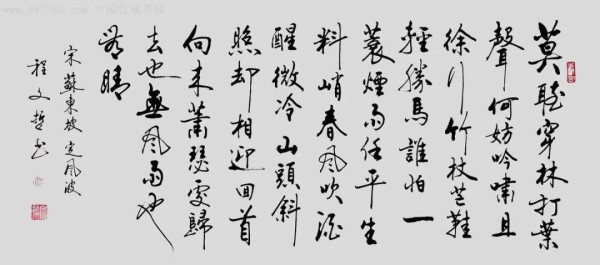 莫聽穿林打葉
聲何妨吟嘯且
徐行竹杖芒鞋
輕勝馬誰怕一
蓑煙雨任平生
料峭春風吹酒
醒微冷山頭斜
照却相迎回首
向來蕭瑟處歸
去也無風雨也
無晴
宋蘇東坡定風波
程文哲書